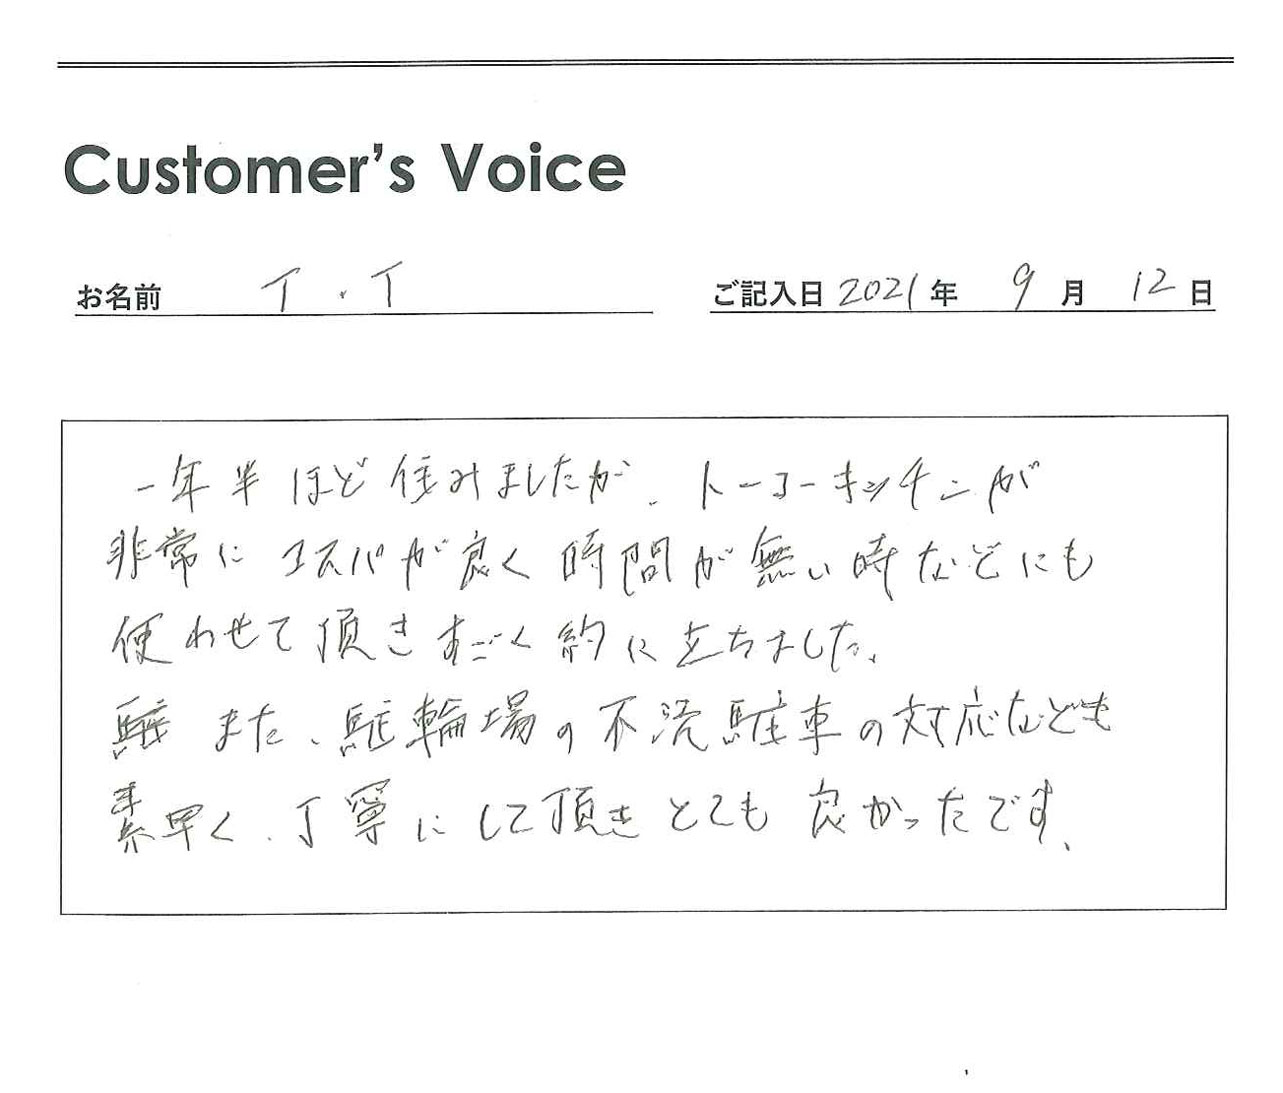 Customer's Voice
お名前 T.T ご記入日 2021年 9月 12日
一年半ほど住みましたが、トーコーキッチンが
非常にコスパが良く時間が無い時などにも
使わせて頂きすごく約に立ちました。
駐 また、駐輪場の不法駐車の対応なども
素早く、丁寧にして頂きとても良かったです。